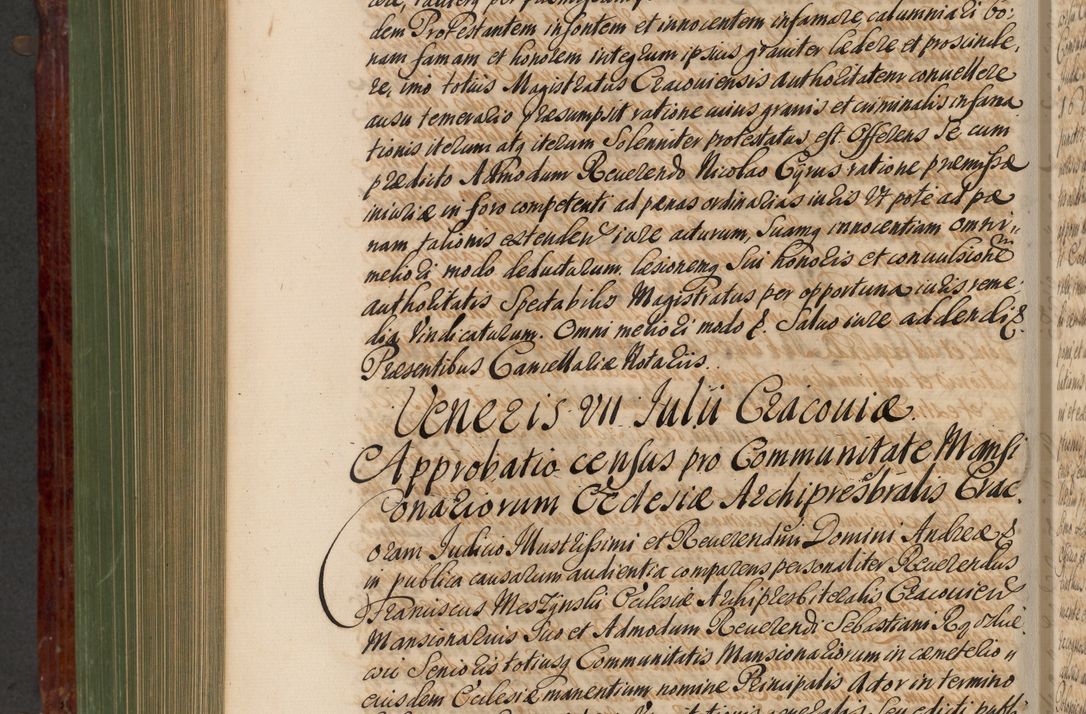 dem Protestantem insontem et innocentem infamare, calumniari bo:
nam famam et honorem integrum ipsius grauiter lædere et proscinde,
re, imo totius Magistratus Cracouiensis authoritatem conuellere
ausu temerario præsumpsit ratione cuius grauis et criminalis infama
tionis iterum atq iterum Solenniter protestatus est. Offerens Se cum
prædicto Admodum Reuerendo Nicolao Cyrus ratione præmissæ
iniuriæ in foro competenti ad pænas ordinarias iuris Ut pote ad pæ
nam talionis extenden iure acturum, Suamq innocentiam omni
meliori modo deducturum. læsionemq Sui honoris et conuulsionem
authoritatis Spectabilis Magistratus per opportuna iuris reme:
dia Vindicaturum. Omni meliori modo &. Saluo iure addendi &
Præsentibus Cancellariæ Notariis.
Veneris VII Iulii Cracouiæ
Approbatio census pro Communitate Mansi
onariorum Ecclesiæ Archipresbralis Crac.
Coram Iudicio Illustrissimi et Reuerendmi Domini Andreæ &
in publica causarum audientia comparens personaliter Reuerendus
Franciscus Meszynski Ecclesiæ Archipresbiteralis Cracouien
Mansionarius Suo et Admodum Reuerendi Sebastiani
Senioris totiusq Communitatis Mansionariorum in cæmeterio
eiusdem Ecclesiæ manentium nomine Principalis Actor in termino